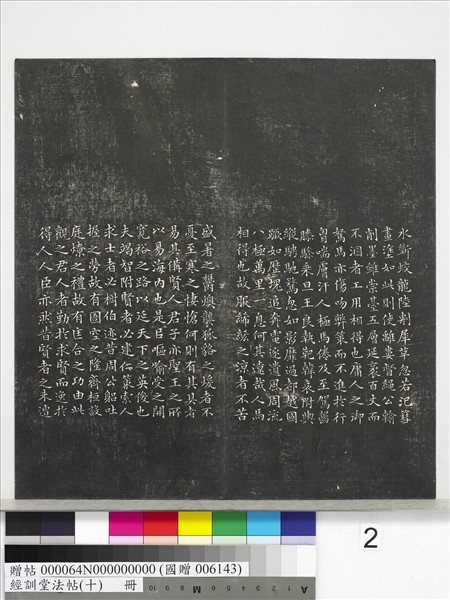 水斷蛟龍陸剸犀革忽若汜篲
畫塗如此則使離婁督繩公輸
削墨雖崇臺五層延袤百丈而
不溷者工用相得也庸人之御
駑馬亦傷吻弊策而不進於行
胷喘膚汗人極馬倦及至駕齧
膝驂乘旦王良執靶韓哀附輿
縱騁馳騖忽如影靡過都越國
蹶如歷塊追奔電逐遺風周流
八極萬里一息何其遼哉人馬
相得也故服絺綌之涼者不苦
盛暑之鬱燠襲狐貉之煖者不
憂至寒之悽愴何則有其具者
易其備賢人君子亦聖王之所
以易海內也是㠯嘔喻受之開
寬裕之路以延天下之英俊也
夫竭智附賢者必建仁策索人
求士者必樹伯迹昔周公躬吐
握之勞故有圄空之隆齊桓設
庭燎之禮故有匡合之功由此
觀之君人者勤於求賢而逸於
得人人臣亦然昔賢者之未遭
2
贈帖 000064N000000000 (國贈 006143)
經訓堂法帖(十) 冊
A 1 2 3 4 5 6 M 8 9 10